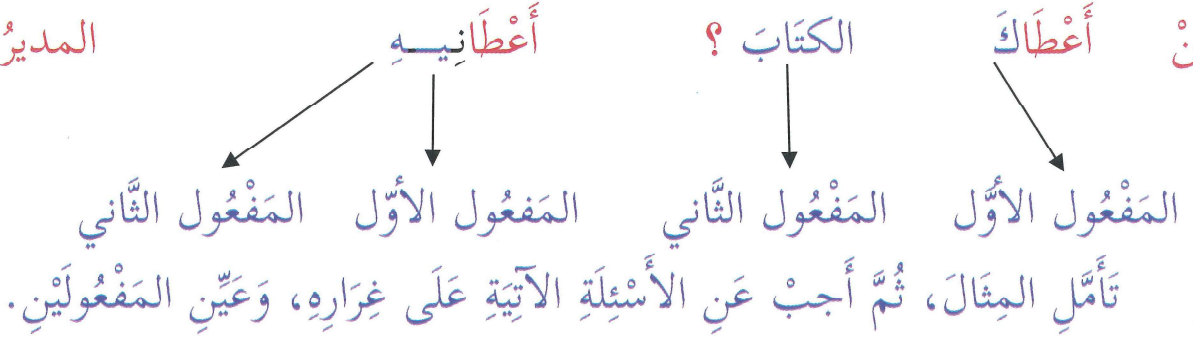 أَعْطَاكَ الكتَابَ ؟ أَعْطَانِيــهِ المديرُ
المَفْعُول الأوَّل المَفْعُول الثَّاني المَفعُول الأوّل المَفْعُول الثَّاني
تَأَمَّلِ المِثَالَ، ثُمَّ أَجبْ عَنِ الأَسْئِلَةِ الآتِيَةِ عَلَى غِرَارِهِ، وَعَيِّنِ المَفْعُولَيْنِ.